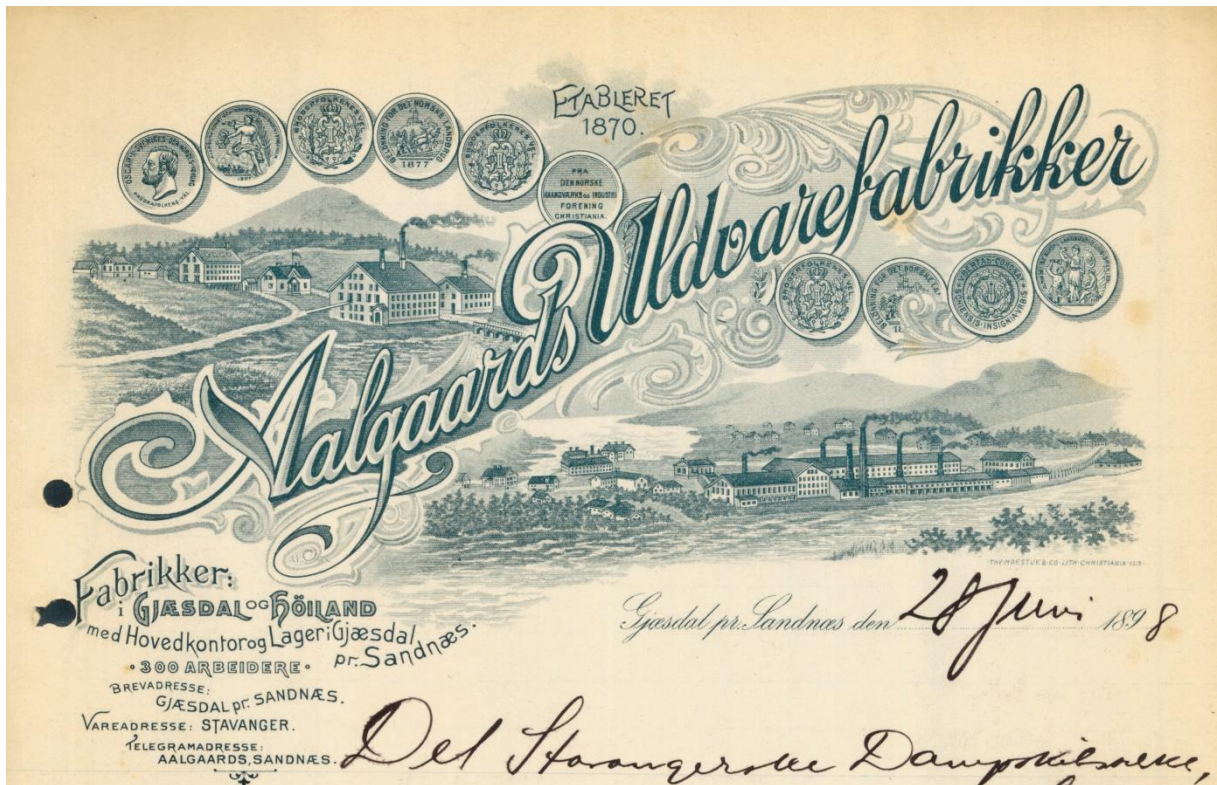 ETABLERET
1870.
OSCAR II
BRODERFOLKENES VEL
1877
BRODERFOLKENES VEL
FRA
DEN NORSKE
HAANDVÆRKS OG INDUSTRI
FORENING
CHRISTIANIA.
Aalgaards Uldvarefabrikker
BRODERFOLKENES VEL
Fabrikker:
i GJÆSDAL OG HÖILAND
med Hovedkontor og Lager i Gjæsdal
pr. Sandnæs.
• 300 ARBEIDERE •
BREVADRESSE:
GJÆSDAL pr. SANDNÆS.
VAREADRESSE: STAVANGER.
TELEGRAMADRESSE:
AALGAARDS, SANDNÆS.
Gjæsdal pr. Sandnæs den 28 Juni 1898
Det Stavangerske Dampskibsselsk,